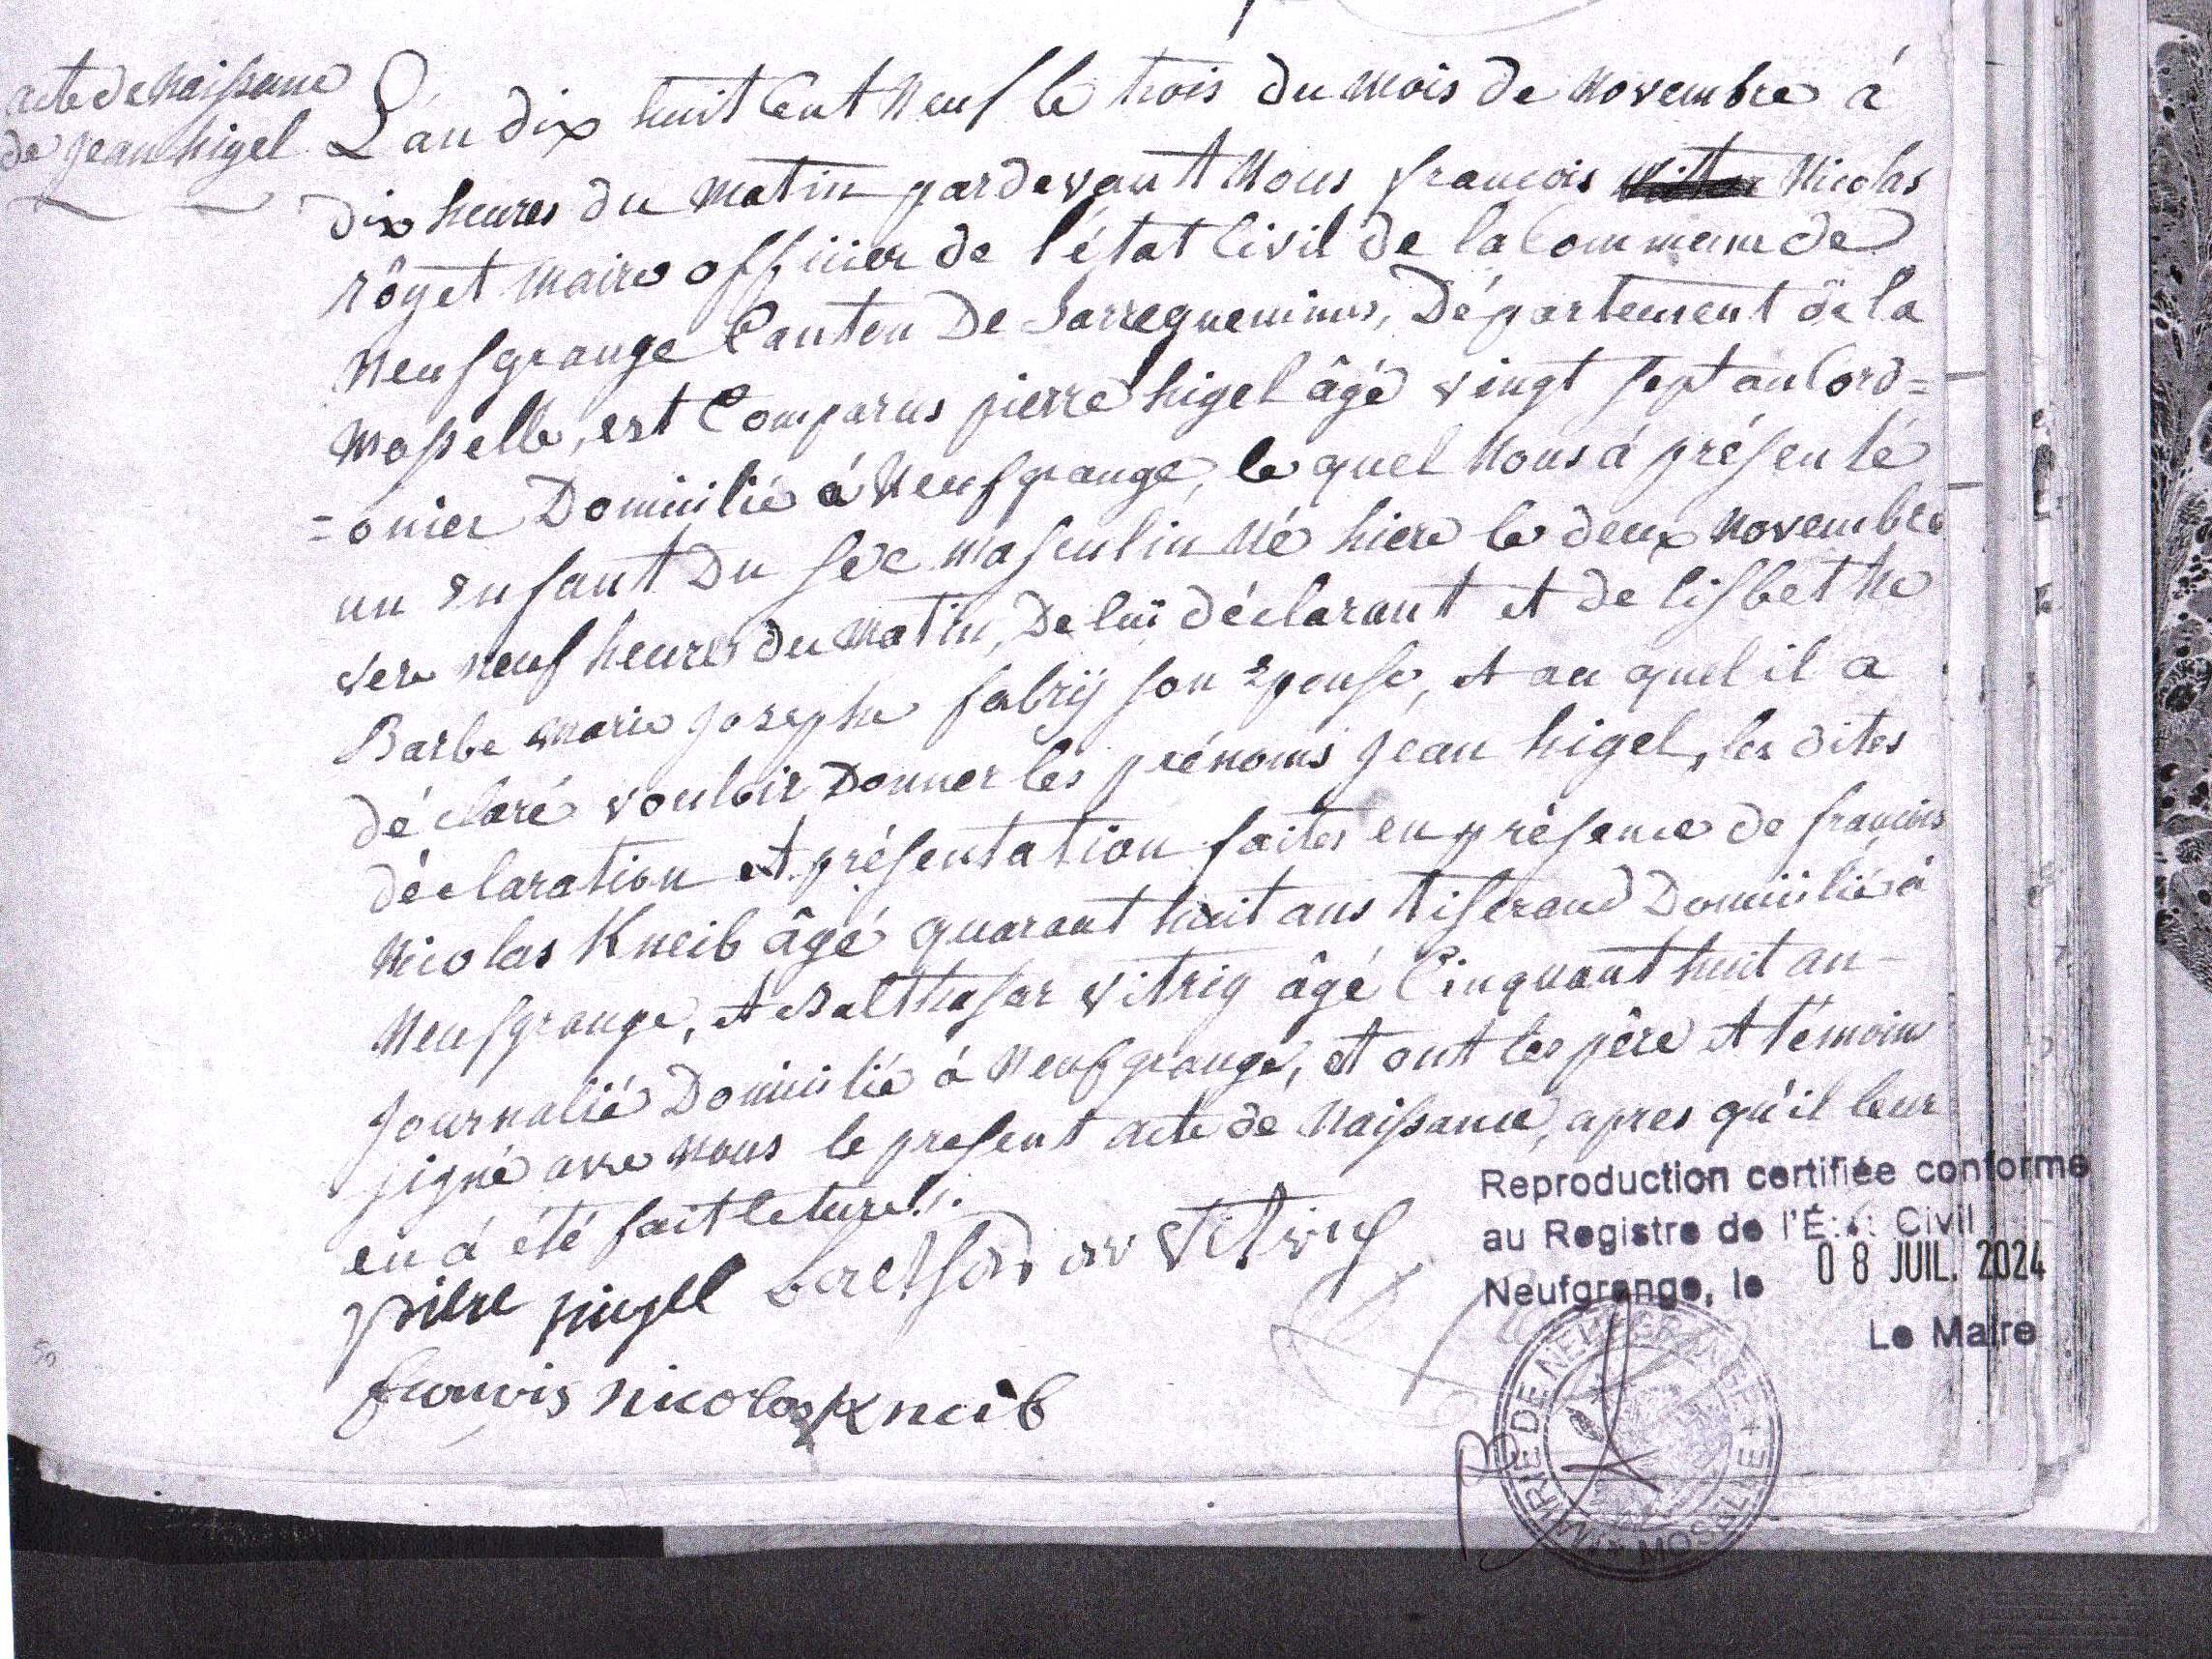 acte de Naissance
de Jean higel
L'an dix huit Cent Neuf le trois du mois de Novembre à
dix heures du matin pardevant Nous francois Nicolas
rôyet maire officier de l'état Civil de la Commune de
Neufgrange Canton De Sarreguemines, Département de la
Mosselle, est Comparus pierre higel âgé vingt sept an Cord=
=onier Domicilié à Neufgrange, le quel Nous á présenté
un enfant Du sexe masculin Né hiere le deux Novembre
vere neuf heures du Matin, De luï déclarant et de lisbethe
Barbe marie Josephe fabrÿ son epouse, et au quel il a
déclaré vouloir Donner les prénoms Jean higel, les dites
déclaration et présentation faites en présence de francois
Nicolas Kneib âgé quarant huit ans tiserand Domicilié à
Neufgrange, et Balthasar vitrig âgé Cinquant huit an
Journalié Domicilié à Neufgrange, et ont les père et témoins
signé ave nous le present acte de Naissance, apres qu'il leur
en á été fait leture!.
Pière higel vitrig
francois nicolas Kneib
Reproduction certifiée conforme
au Registre de l'É Civil
Neufgrange, le 08 JUIL. 2024
Le Maire
MAIRIE DE NEUFGRANGE
MOSELLE